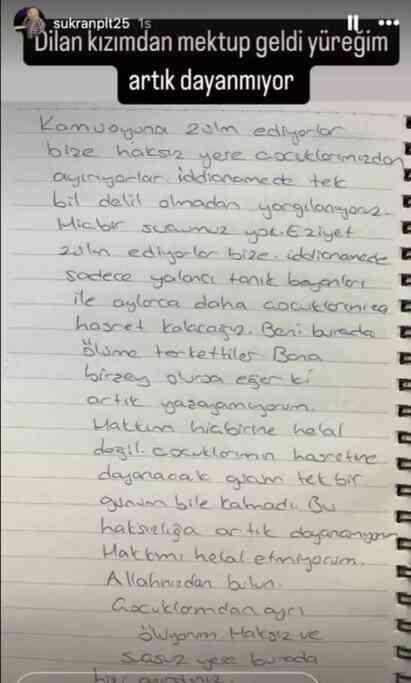 sukranplt25 1s
Dilan kızımdan mektup geldi yüreğim
artık dayanmıyor
Kamuoyuna zulm ediyorlar
bize haksız yere çocuklarımızdan
ayırıyorlar. iddianamede tek
bil delil olmadan yargılanıyoruz.
Hiçbir suçumuz yok. Eziyet
zulm ediyorlar bize. iddianamede
sadece yalancı tanık beyanları
ile aylarca daha çocuklarımıza
hasret kalacağız. Beni burada
ölüme terkettiler Bana
birzey olursa eğer ki
artık yazayamıyorum.
Hakkım hiçbirine helal
değil. çocuklarımın hasretine
dayanacak gücüm tek bir
günüm bile kalmadı. Bu
haksızlığa artık dayanamıyorum
Hakkımı helal etmiyorum.
Allahınızdan bulun.
Çocuklarımdan ayrı
ölüyorum. Haksız ve
suçsuz yere burada
bizi